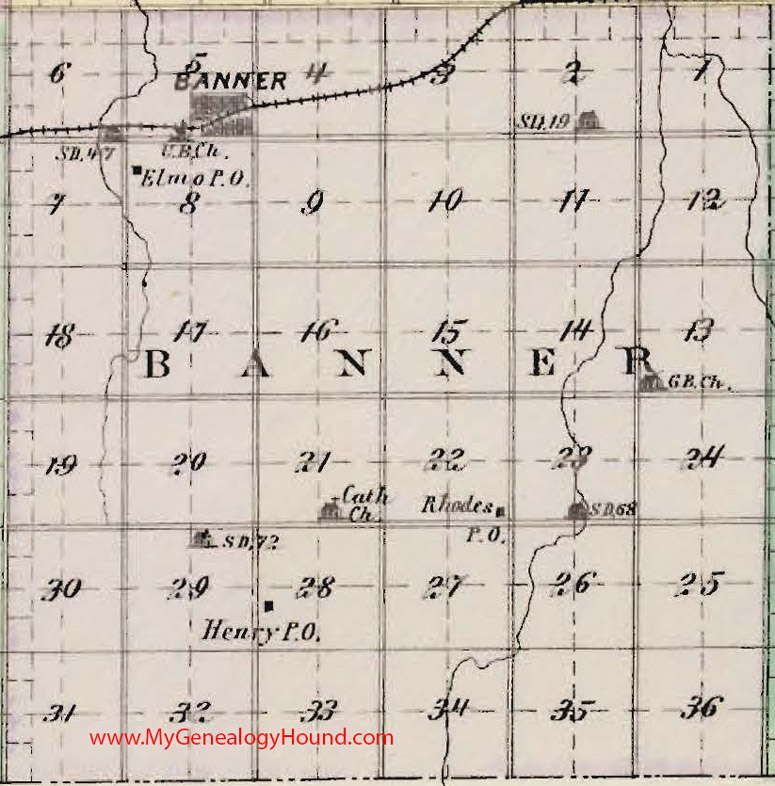 6 5 4 3 2 1
BANNER
SD.19
SD.47 U.B.Ch.
Elmo P.O.
7 8 9 10 11 12
18 17 16 15 14 13
BANNER
G.B.Ch.
19 20 21 22 23 24
Cath
Ch.
Rhodes
P.O.
SD.68
S.D.72
30 29 28 27 26 25
Henry P.O.
31 32 33 34 35 36
www.MyGenealogyHound.com